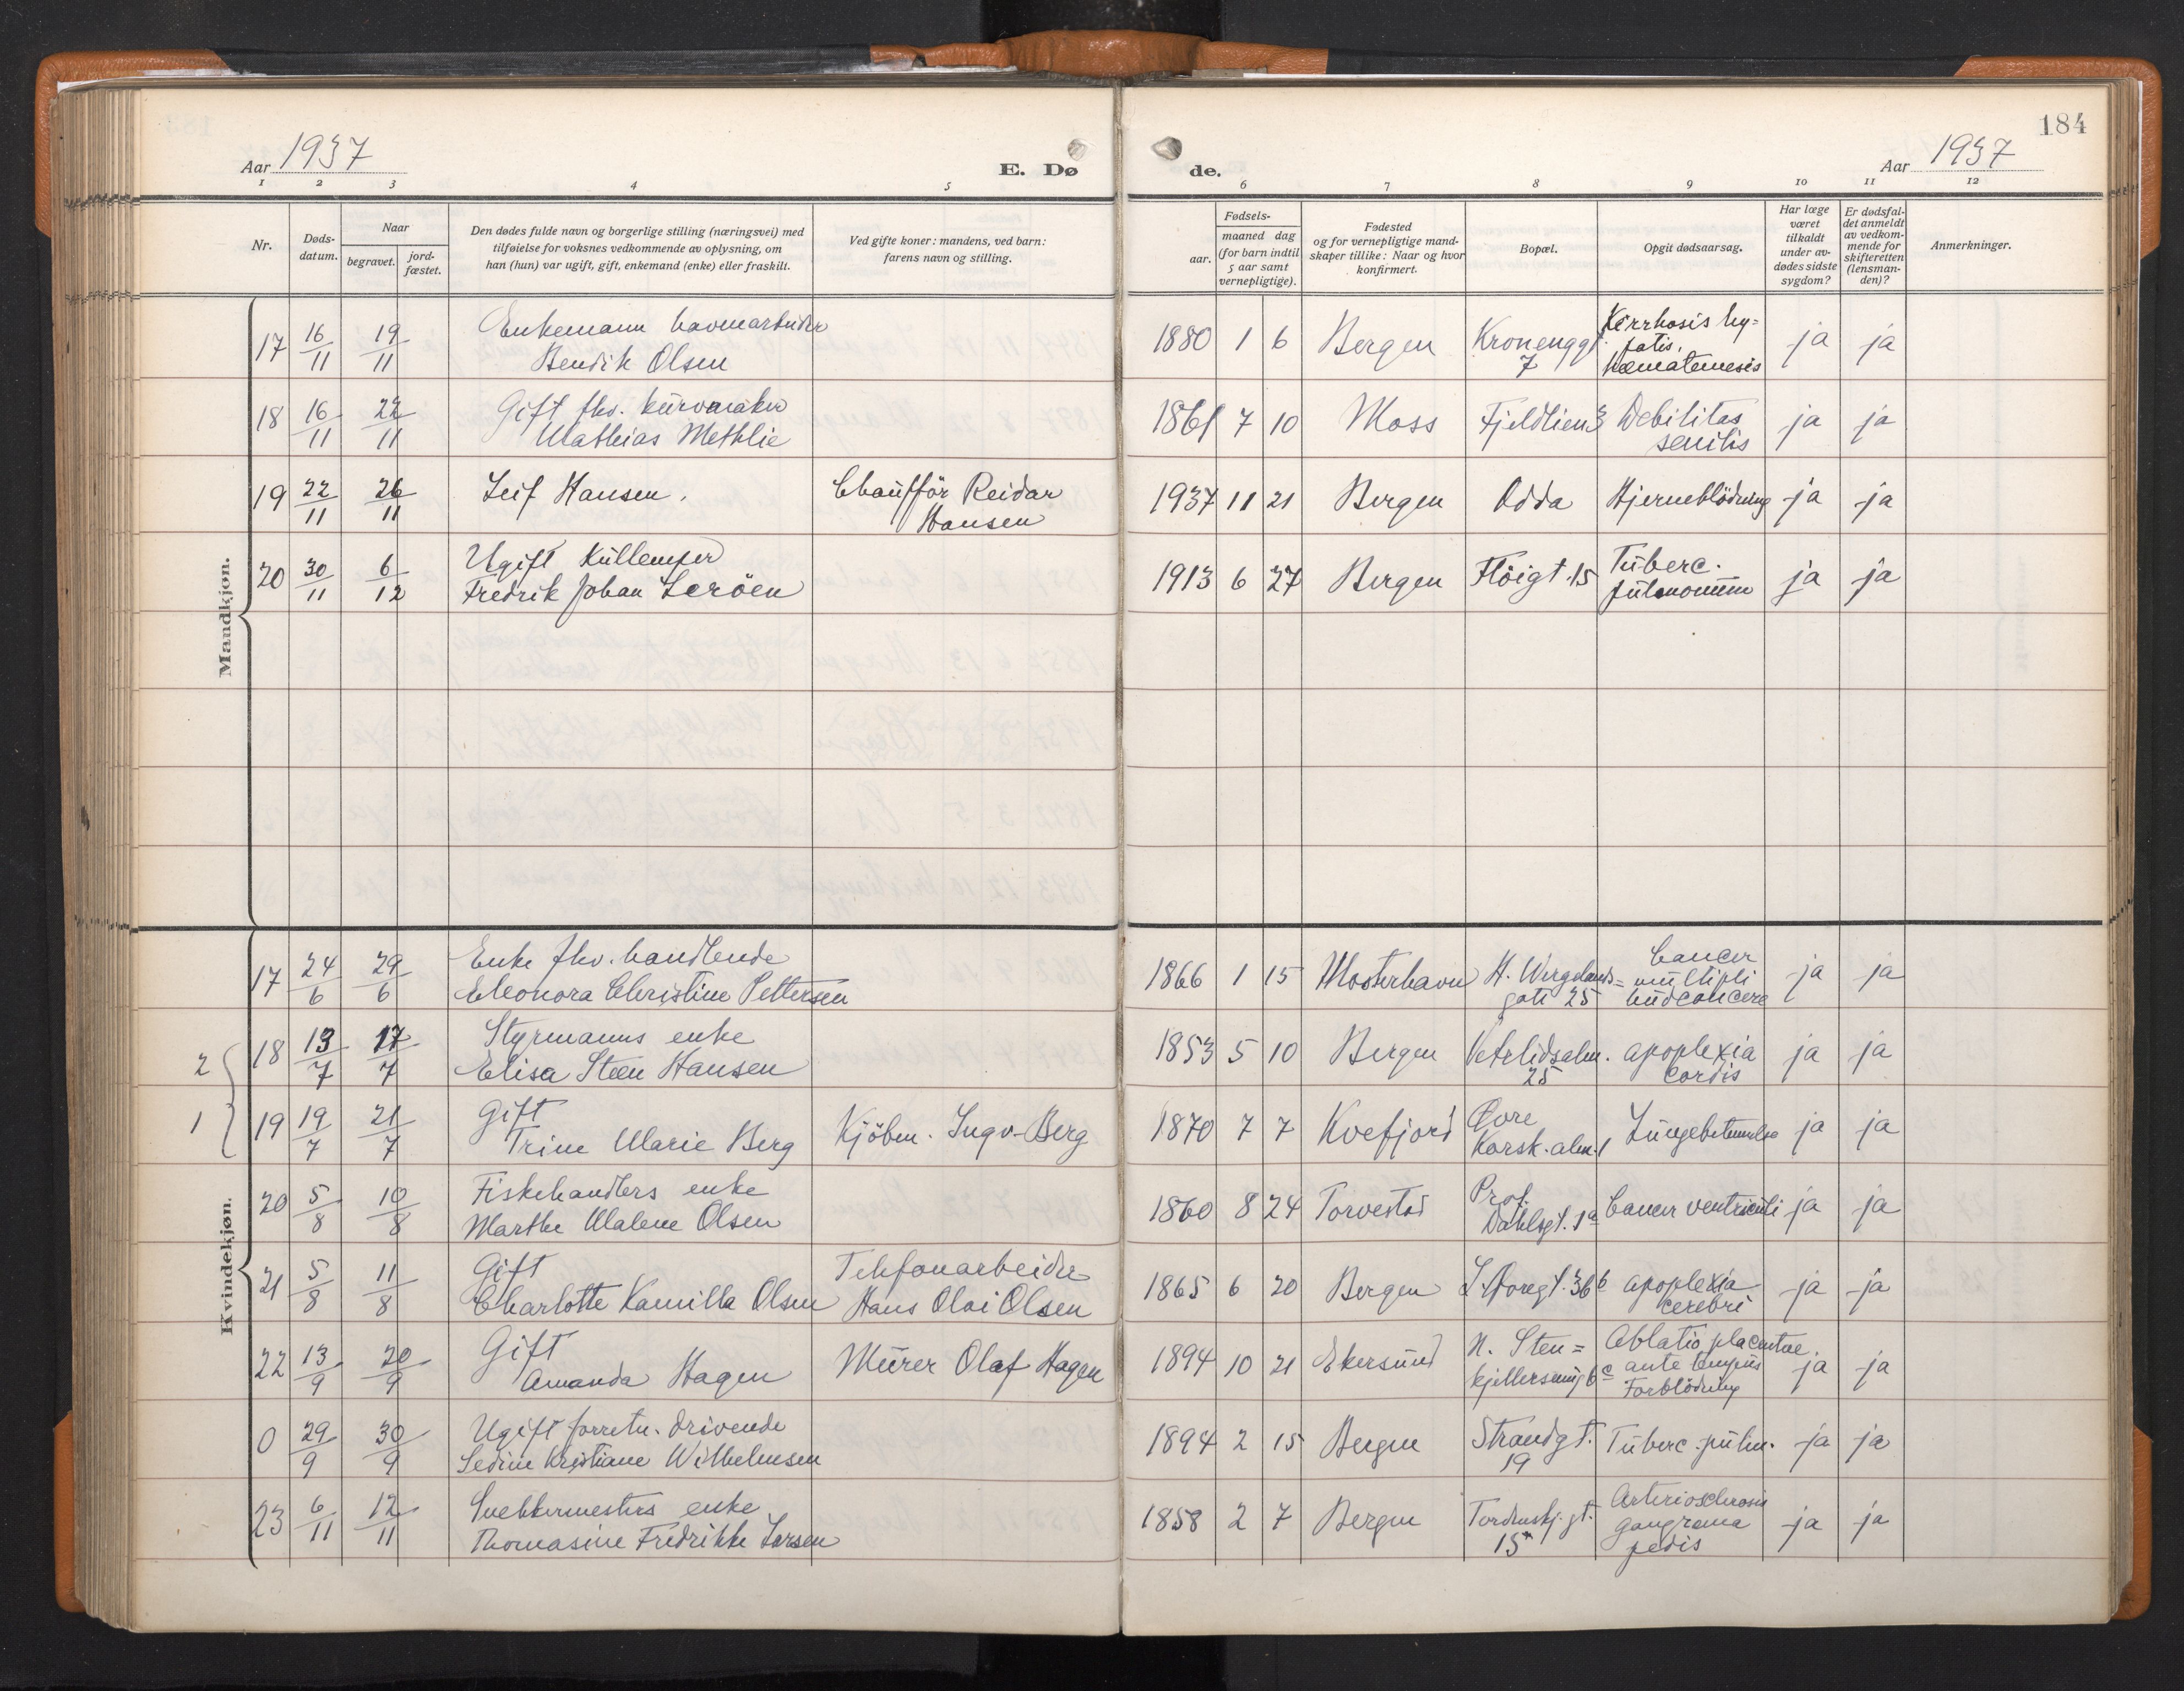 184
Aar 1937
E. Dø
de.
Aar 1937
1 2 3 4 5
6 7 8 9 10 11 12
Nr.
Døds-
datum.
Naar
begravet.
jord-
fæstet.
Den dødes fulde navn og borgerlige stilling (næringsvei) med
tilføielse for voksnes vedkommende av oplysning, om
han (hun) var ugift, gift, enkemand (enke) eller fraskilt.
Ved gifte koner: mandens, ved barn:
farens navn og stilling.
Fødsels-
aar.
maaned dag
(for barn indtil
5 aar samt
vernepligtige).
Fødested
og for vernepligtige mand-
skaper tillike: Naar og hvor
konfirmert.
Bopæl.
Opgit dødsaarsag.
Har læge
været
tilkaldt
under av-
dødes sidste
sygdom?
Er dødsfal-
det anmeldt
av vedkom-
mende for
skifteretten
(lensman-
den)?
Anmerkninger.
Mandkjøn.
17 16/11 19/11 Enkemann havnearbeider
Bendik Olsen
1880 1 6 Bergen Kronenggt. 7
Kirrhosis hy=
patis.
Hæmatemesis
ja ja
18 16/11 22/11 Gift fhv. kurvmaker
Mathias Methlie
1861 7 10 Moss Fjeldlien 3
Debilitas
senilis
ja ja
19 22/11 26/11 Leif Hansen.
Chauffør Reidar
Hansen
1937 11 21 Bergen Odda Hjerneblödning ja ja
20 30/11 6/12 Ugift Kullemper
Fredrik Johan Leröen
1913 6 27 Bergen Flöigt. 15
Tuberc.
pulmonum
ja ja
Kvindekjøn.
17 24/6 29/6 Enke fhv. handlende
Eleonora Christine Pettersen
1866 1 15 Mosterhavn
H. Wergelands=
gate 25
Cancer
multipli
hudcancere
ja ja
2
18 13/7 17/7 Styrmanns enke
Elisa Steen Hansen
1853 5 10 Bergen
Vetrlidsalm.
25
apoplexia
cordis
ja ja
1
19 19/7 21/7 Gift
Trine Marie Berg
Kjöbm. Ingv. Berg
1870 7 7 Kvefjord
Øvre
Korsk.alm. 1
Lungebetennelse
ja ja
20 5/8 10/8 Fiskehandlers enke
Marthe Malene Olsen
1860 8 24 Torvestad
Prof.
Dahlsgt. 1a
Cancer ventriculi
ja ja
21 5/8 11/8 Gift
Charlotte Kamilla Olsen
Telefonarbeider
Hans Olai Olsen
1865 6 20 Bergen 36b
apoplexia
cerebri
ja ja
22 13/9 20/9 Gift
Amanda Hagen
Murer Olaf Hagen
1894 10 21 Ekersund
N. Sten=
kjellersmug 6c
Ablatio placentae
ante tempus
Forblödning
ja ja
0 29/9 30/9 Ugift forretn. drivende
Sedine Kristiane Wilhelmsen
1894 2 15 Bergen
Strandgt.
19
Tuberc. pulm.
ja ja
23 6/11 12/11 Snekkermesters enke
Thomasine Fredrikke Larsen
1858 2 7 Bergen
Tordenskj.gt.
15
Arteriosclerosis
gangræna
pedis
ja ja